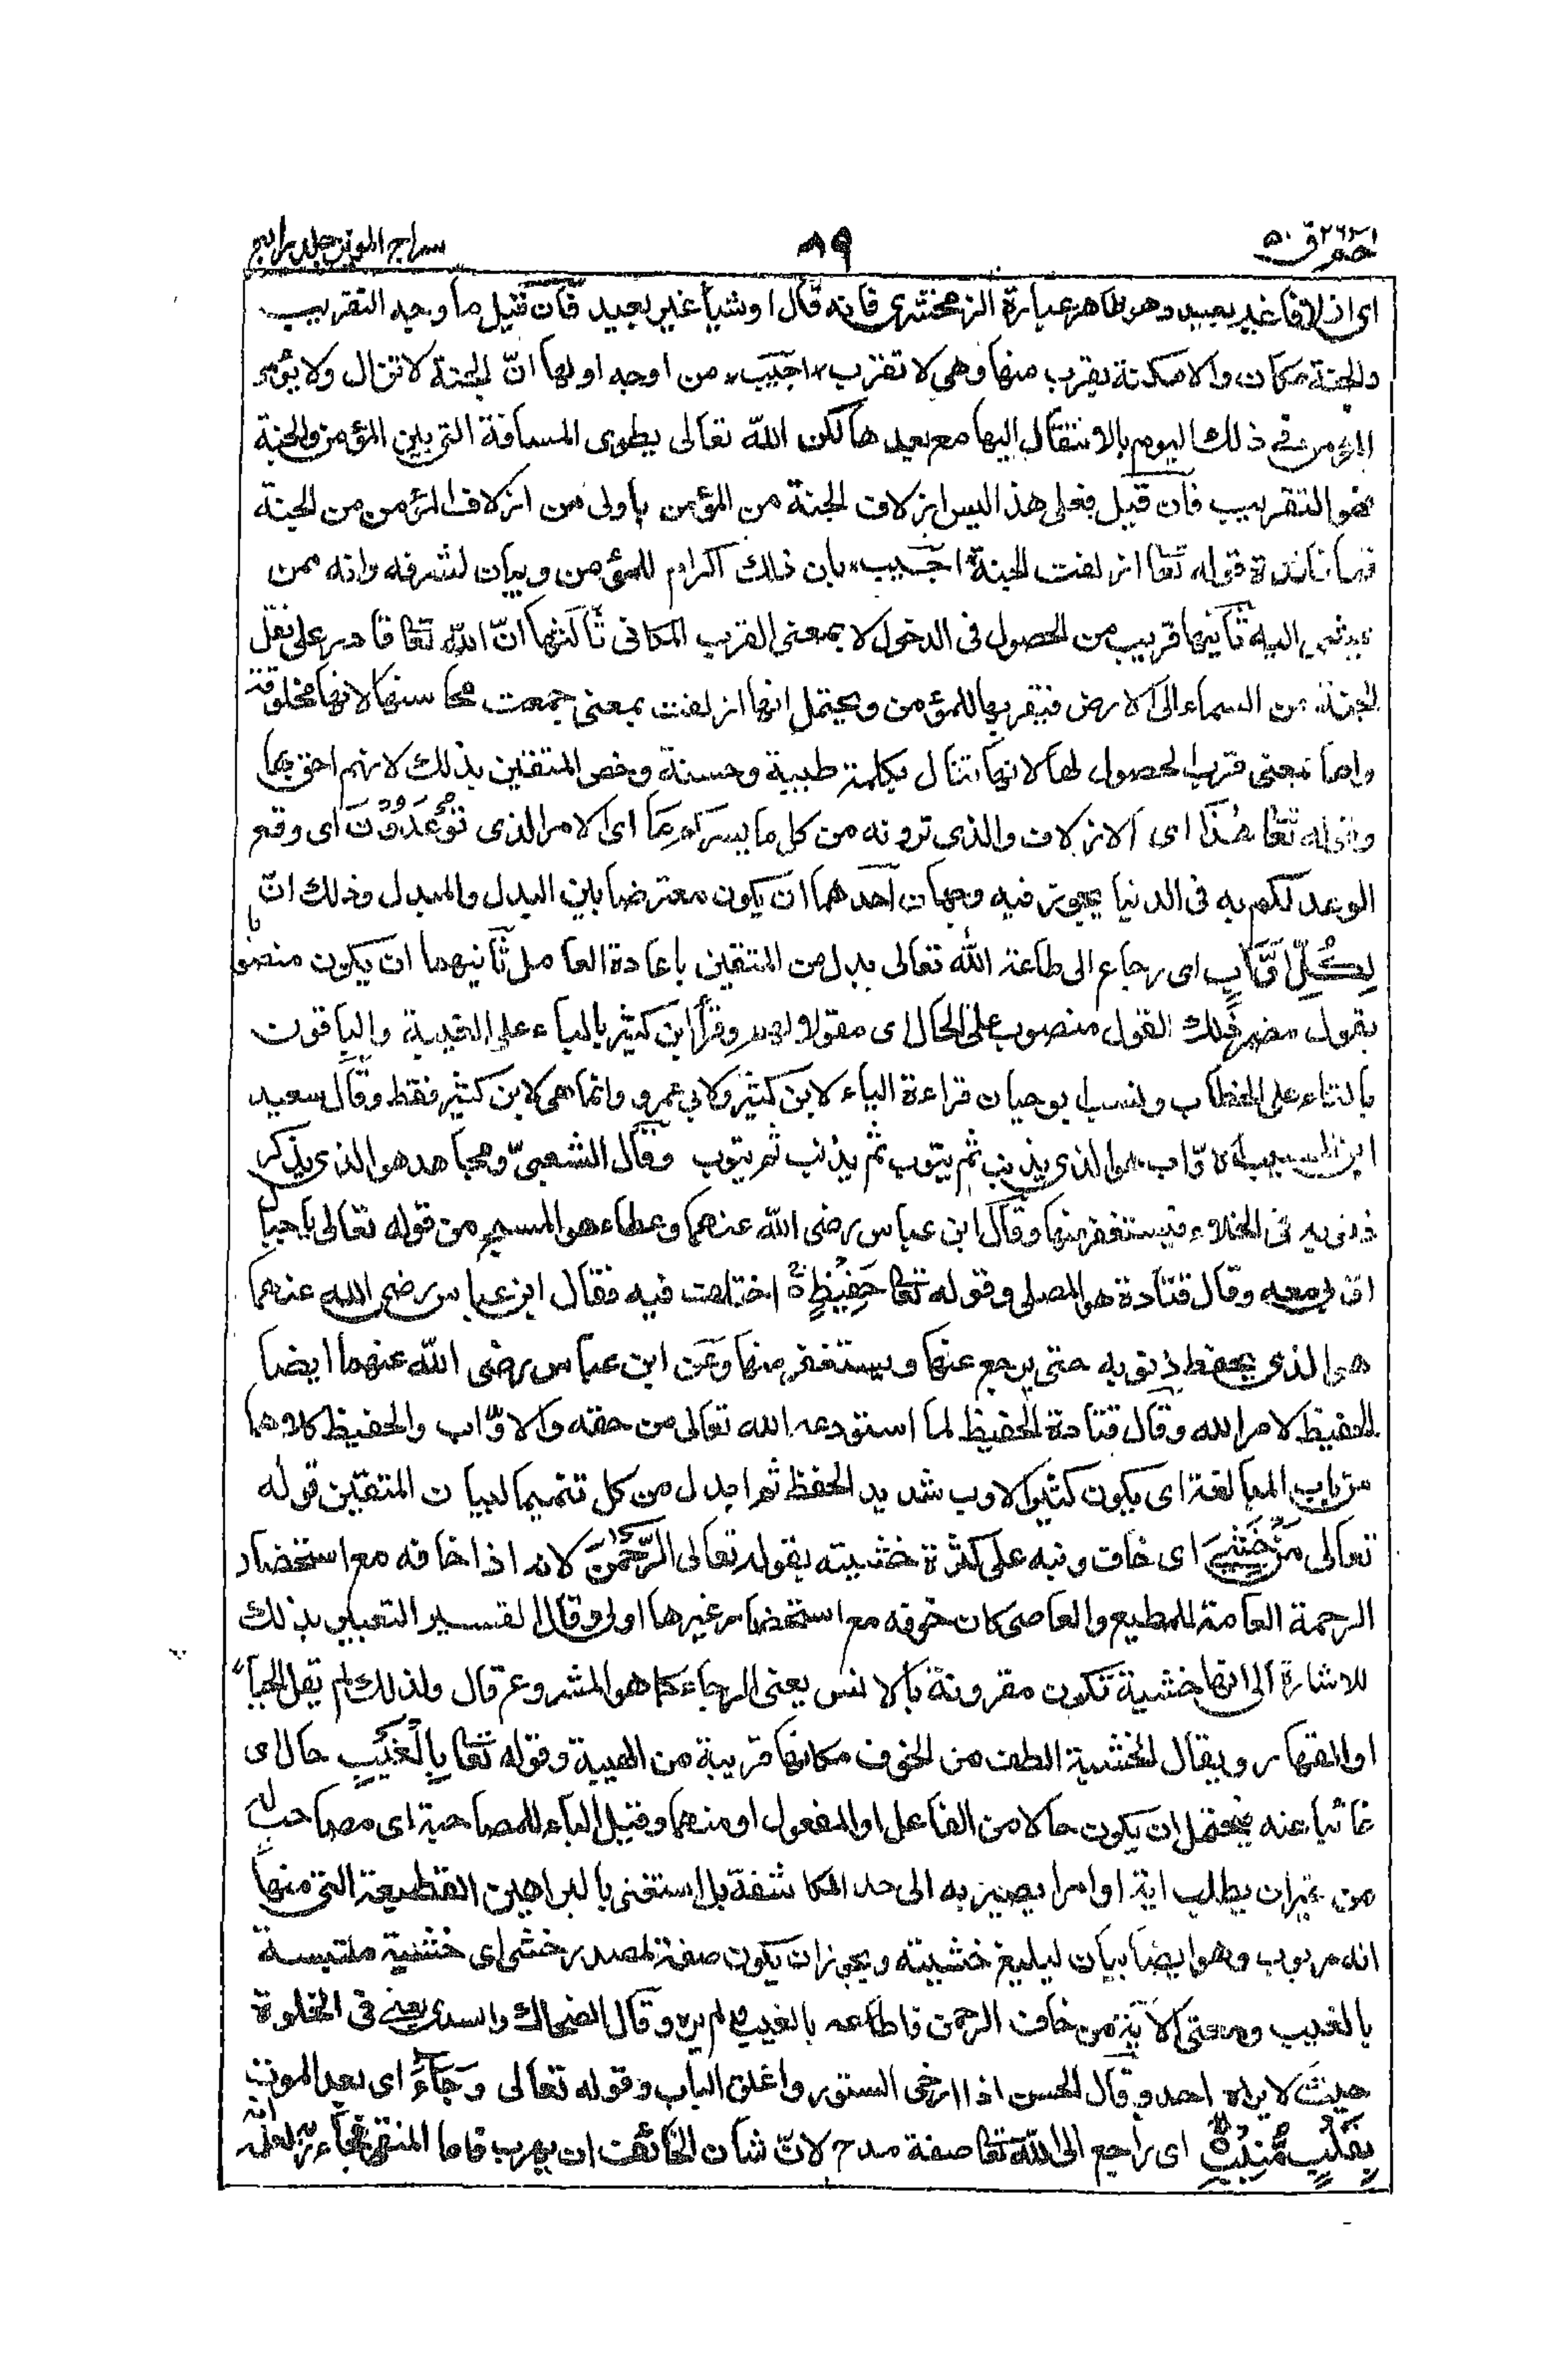 حم٢٦ قۤ ٥٠ ٨٩ سراج المنير جلد رابع
اى ازلافا غير بعيد وهو ظاهر عبارة الزمخشرى فانه قال او شيأ غير بعيد فان قيل ما وجه التقريب
والجنة مكان والامكنة يقرب منها وهى لا تقرب اجيب من اوجه اولها انّ الجنة لا تزال ولا يؤمر
المؤمن فى ذلك اليوم بالانتقال اليها مع بعدها لكن الله تعالى يطوى المسافة التى بين المؤمن والجنة
فهو التقريب فان قيل فعلى هذا ليس ازلاف الجنة من المؤمن باولى من ازلاف المؤمن من الجنة
فما فائدة قوله تعا ازلفت الجنة اجيب بان ذلك اكرام للمؤمن وبيان لشرفه وانه ممن
يمشى اليه ثانيها قريب من الحصول فى الدخول لا بمعنى القرب المكانى ثالثها انّ الله تعا قادر على نقل
الجنة من السماء الى الارض فيقربها للمؤمن ويحتمل انها ازلفت بمعنى جمعت محاسنها لانها مخلوقة
واما بمعنى قرب الحصول لها لانها تنال بكلمة طيبة وحسنة وخص المتقين بذلك لانهم احق بها
وقوله تعا هٰذَا اى الازلاف والذى ترونه من كل ما يسركم مَا اى الامر الذى تُوْعَدُوْنَ اى وقع
الوعد لكم به فى الدنيا يجوز فيه وجهان احدهما ان يكون معترضا بين البدل والمبدل وذلك انّ
لِكُلِّ اَوَّابٍ اى رجاع الى طاعة الله تعالى بدل من المتقين باعادة العامل ثانيهما ان يكون منصوبا
بقول مضمر ذلك القول منصوب على الحال اى مقولا لهم وقرأ ابن كثير بالياء على الغيبة والباقون
بالتاء على الخطاب ونسب ابو حيان قراءة الياء لابن كثير ولابي عمرو وانما هى لابن كثير فقط وقال سعيد
ابن المسيب الاوّاب هو الذى يذنب ثم يتوب ثم يذنب ثم يتوب وقال الشعبىّ ومجاهد هو الذى يذكر
ذنوبه فى الخلاء فيستغفر منها وقال ابن عباس رضى الله عنهما وعطاء هو المسبح من قوله تعالى يا جبال
اوّبى معه وقال قتادة هو المصلى وقوله تعا حَفِيْظٍ اختلف فيه فقال ابن عباس رضى الله عنهما
هو الذى يحفظ ذنوبه حتى يرجع عنها ويستغفر منها وعن ابن عباس رضى الله عنهما ايضا
الحفيظ لامر الله وقال قتادة الحفيظ لما استودعه الله تعالى من حقه والاوّاب والحفيظ كلاهما
من باب المبالغة اى يكون كثير الاوب شديد الحفظ ثم ابدل من كل تتميما لبيان المتقين قوله
تعالى مَنْ خَشِيَ اى خاف ونبه على كثرة خشيته بقوله تعالى الرَّحْمٰنَ لانه اذا خافه مع استحضار
الرحمة العامة للمطيع والعاصى كان خوفه مع استحضار غيرها اولى وقال القسير التعبير بذلك
للاشارة الى انها خشية تكون مقرونة بالانس يعنى الرجاء كما هو المشروع قال ولذلك لم يقل الجبار
او القهار ويقال الخشية الطف من الخوف مكانها قريبة من الهيبة وقوله تعا بِالْغَيْبِ حال اى
غائبا عنه فيحتمل ان يكون حالا من الفاعل او المفعول او منهما وقيل الباء للمصاحبة اى مصاحبا له
من غير ان يطلب اية او امرا يصير به الى حد المكاشفة بل استغنى بالبراهين القطعية التى منها
انه مربوب وهو ايضا بيان لبليغ خشيته ويجوز ان يكون صفة لمصدر خشى اى خشية ملتبسة
بالغيب ومعنى الاية من خاف الرحمن فاطاعه بالغيب ولم يره وقال الضحاك والسدى يعنى فى الخلوة
حيث لا يراه احد وقال الحسن اذا ارخى الستور واغلق الباب وقوله تعالى وَجَآءَ اى بعد الموت
بِقَلْبٍ مُّنِيْبٍ اى راجع الى الله تعا صفة مدح لانّ شأن الخائف ان يهرب فاما المتقى فجاء ربه لعلمه انه